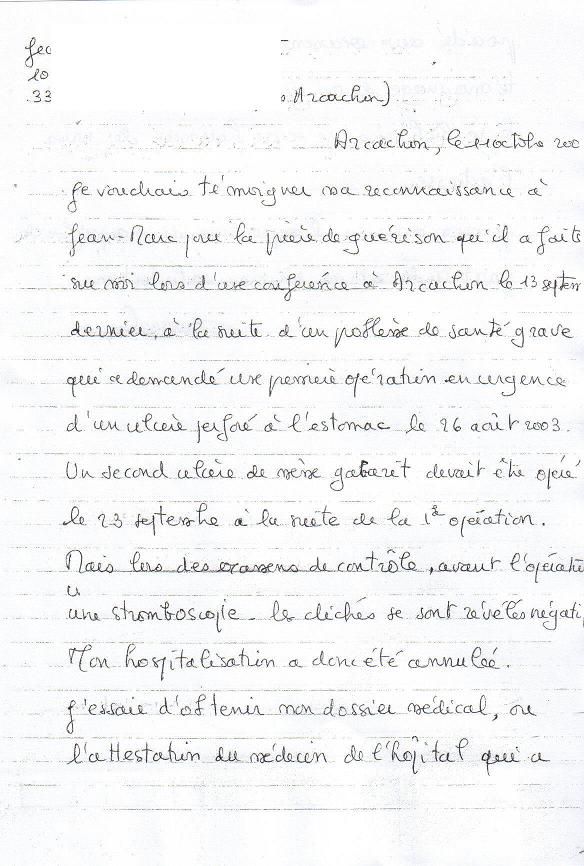 Jea
10
33 Arcachon)
Arcachon, le 11 octobre 200
Je voudrais témoigner ma reconnaissance à
Jean-Marc pour la prière de guérison qu'il a faite
sur moi lors d'une conférence à Arcachon le 13 septem
dernier, à la suite d'un problème de santé grave
qui a demandé une première opération en urgence
d'un ulcère perforé à l'estomac le 26 août 2003.
Un second ulcère de même gabaret devait être opéré
le 23 septembre à la suite de la 1è opération.
Mais lors des examens de contrôle, avant l'opératio
une stromboscopie. les clichés se sont révélés négati
Mon hospitalisation a donc été annulée.
J'essaie d'obtenir mon dossier médical, ou
l'attestation du médecin de l'hôpital qui a